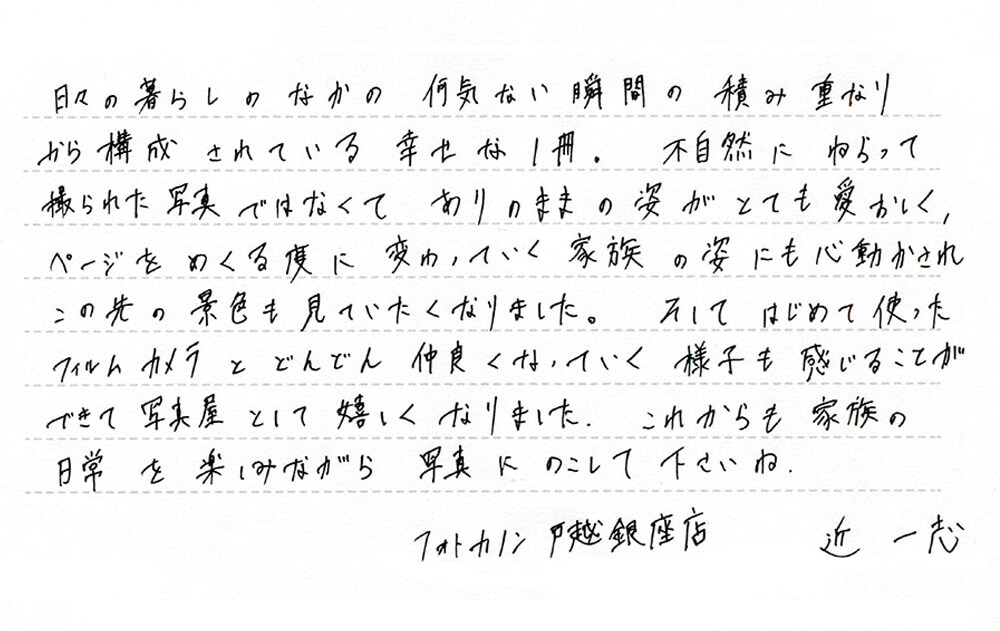 日々の暮らしのなかの何気ない瞬間の積み重なり
から構成されている幸せな1冊。不自然にねらって
撮られた写真ではなくてありのままの姿がとても愛おしく、
ページをめくる度に変わっていく家族の姿にも心動かされ
この先の景色も見ていたくなりました。そしてはじめて使った
フィルムカメラとどんどん仲良くなっていく様子も感じることが
できて写真屋として嬉しくなりました。これからも家族の
日常を楽しみながら写真にのこして下さいね。
フォトカノン戸越銀座店 近 一志